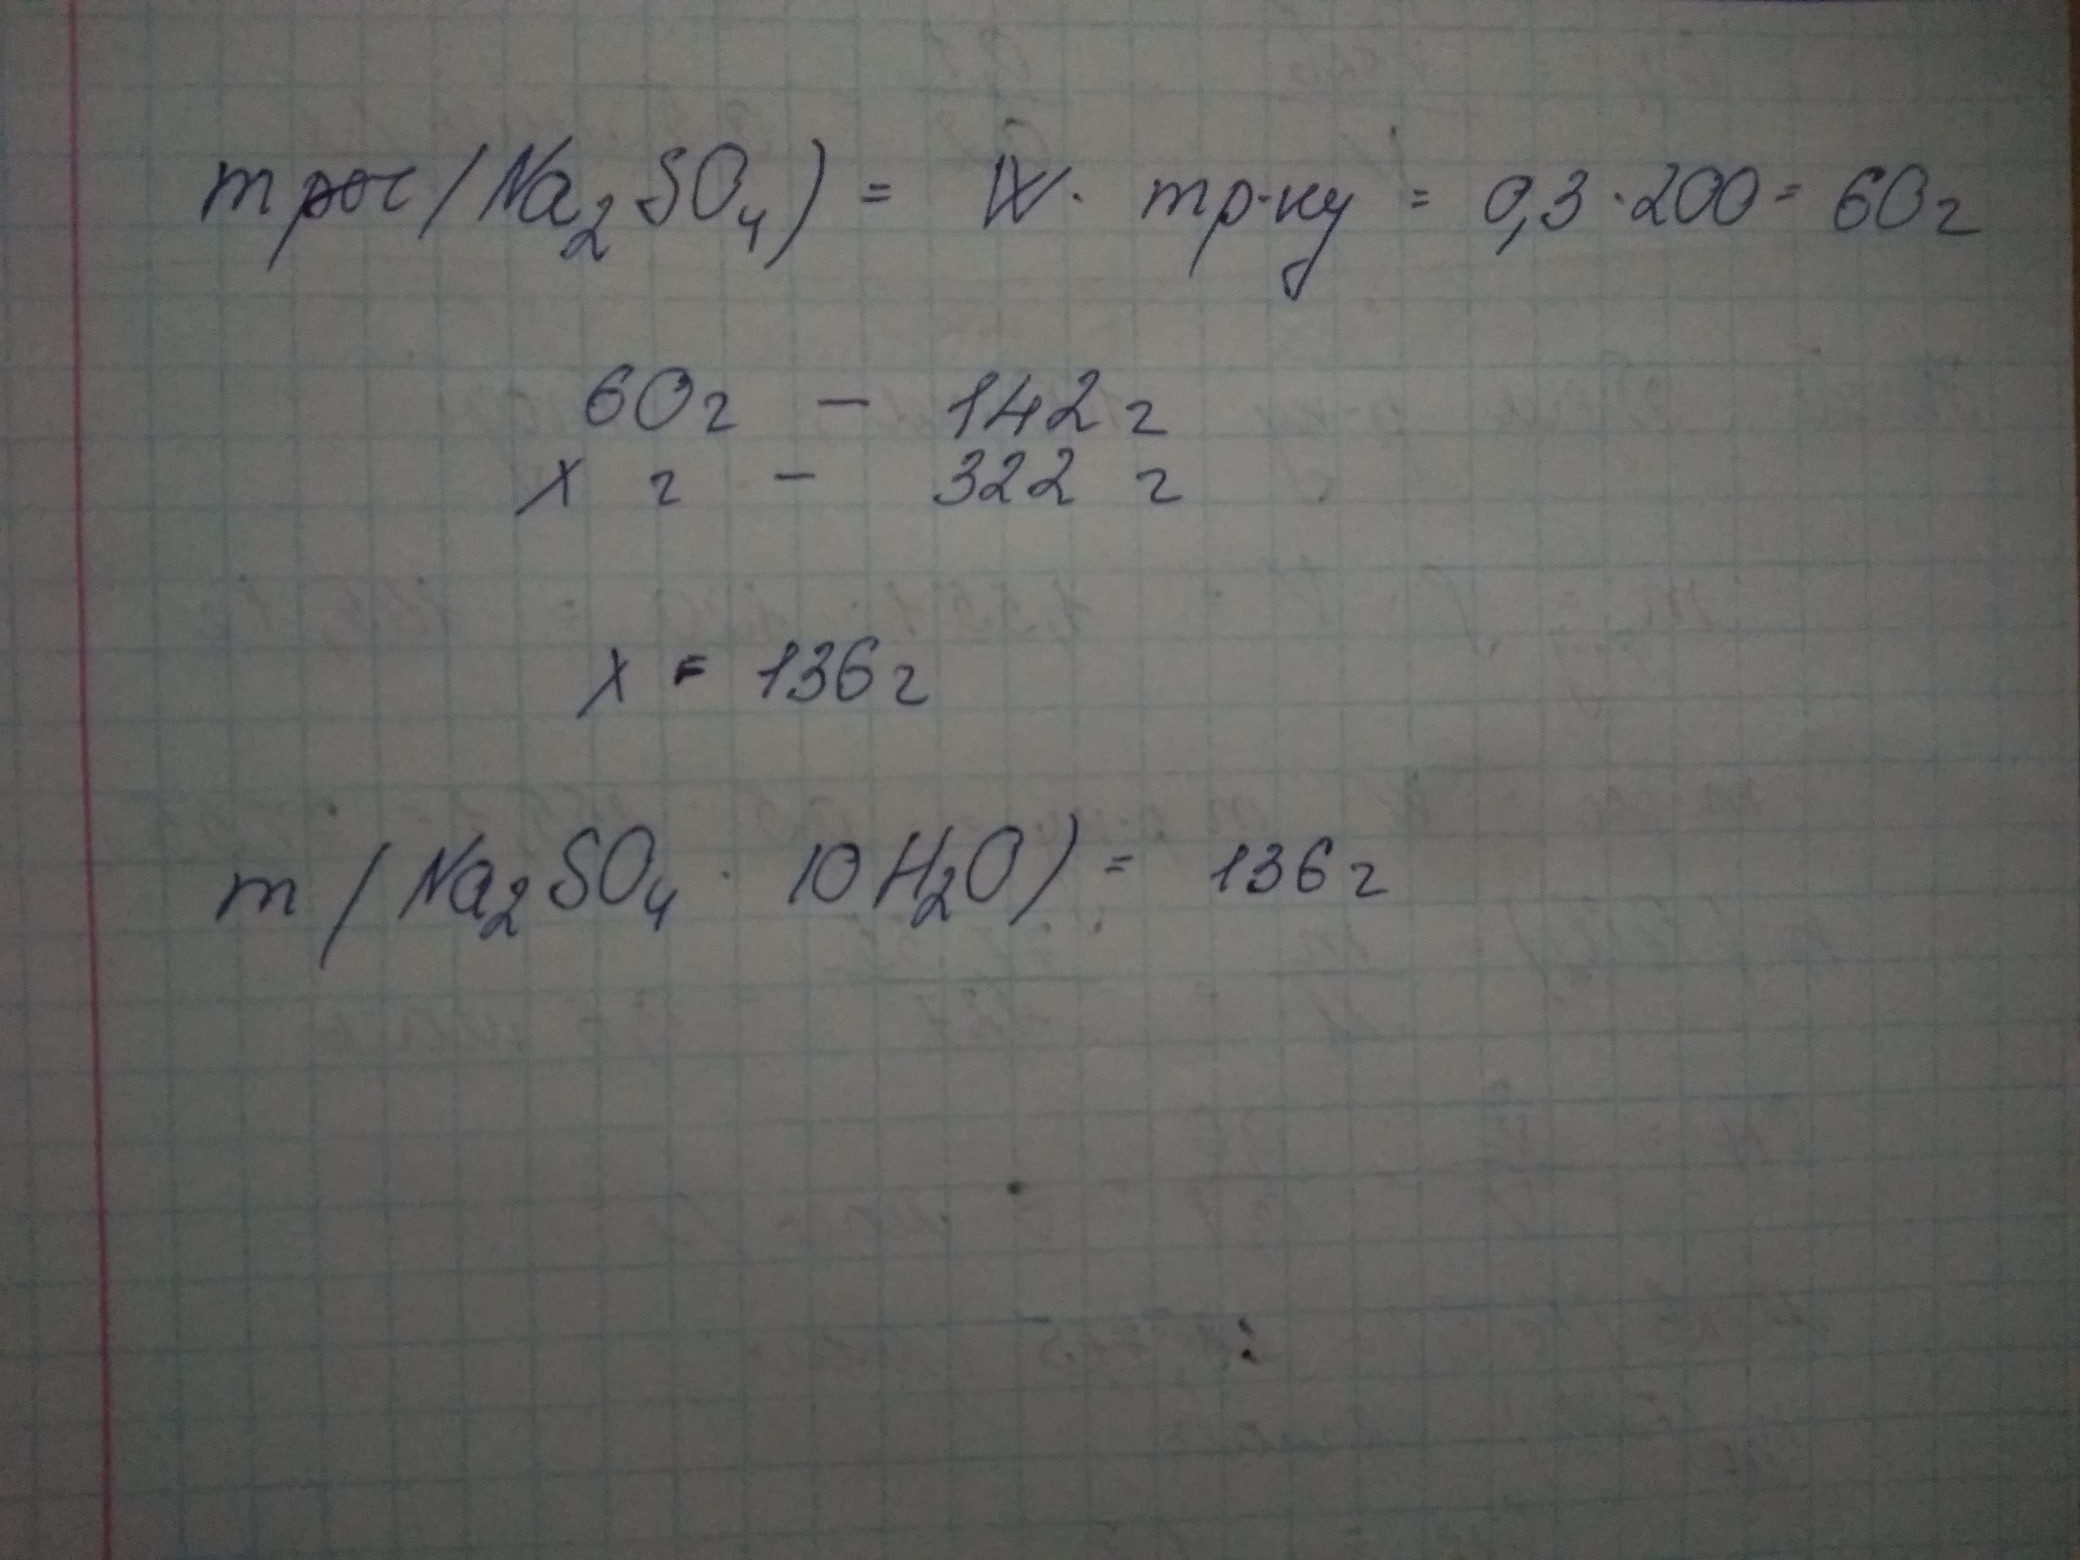 mроз(Na₂SO₄) = W · mр-ну = 0,3 · 200 = 60г
60г – 142г
x г – 322 г
x = 136г
m(Na₂SO₄ · 10H₂O) = 136г